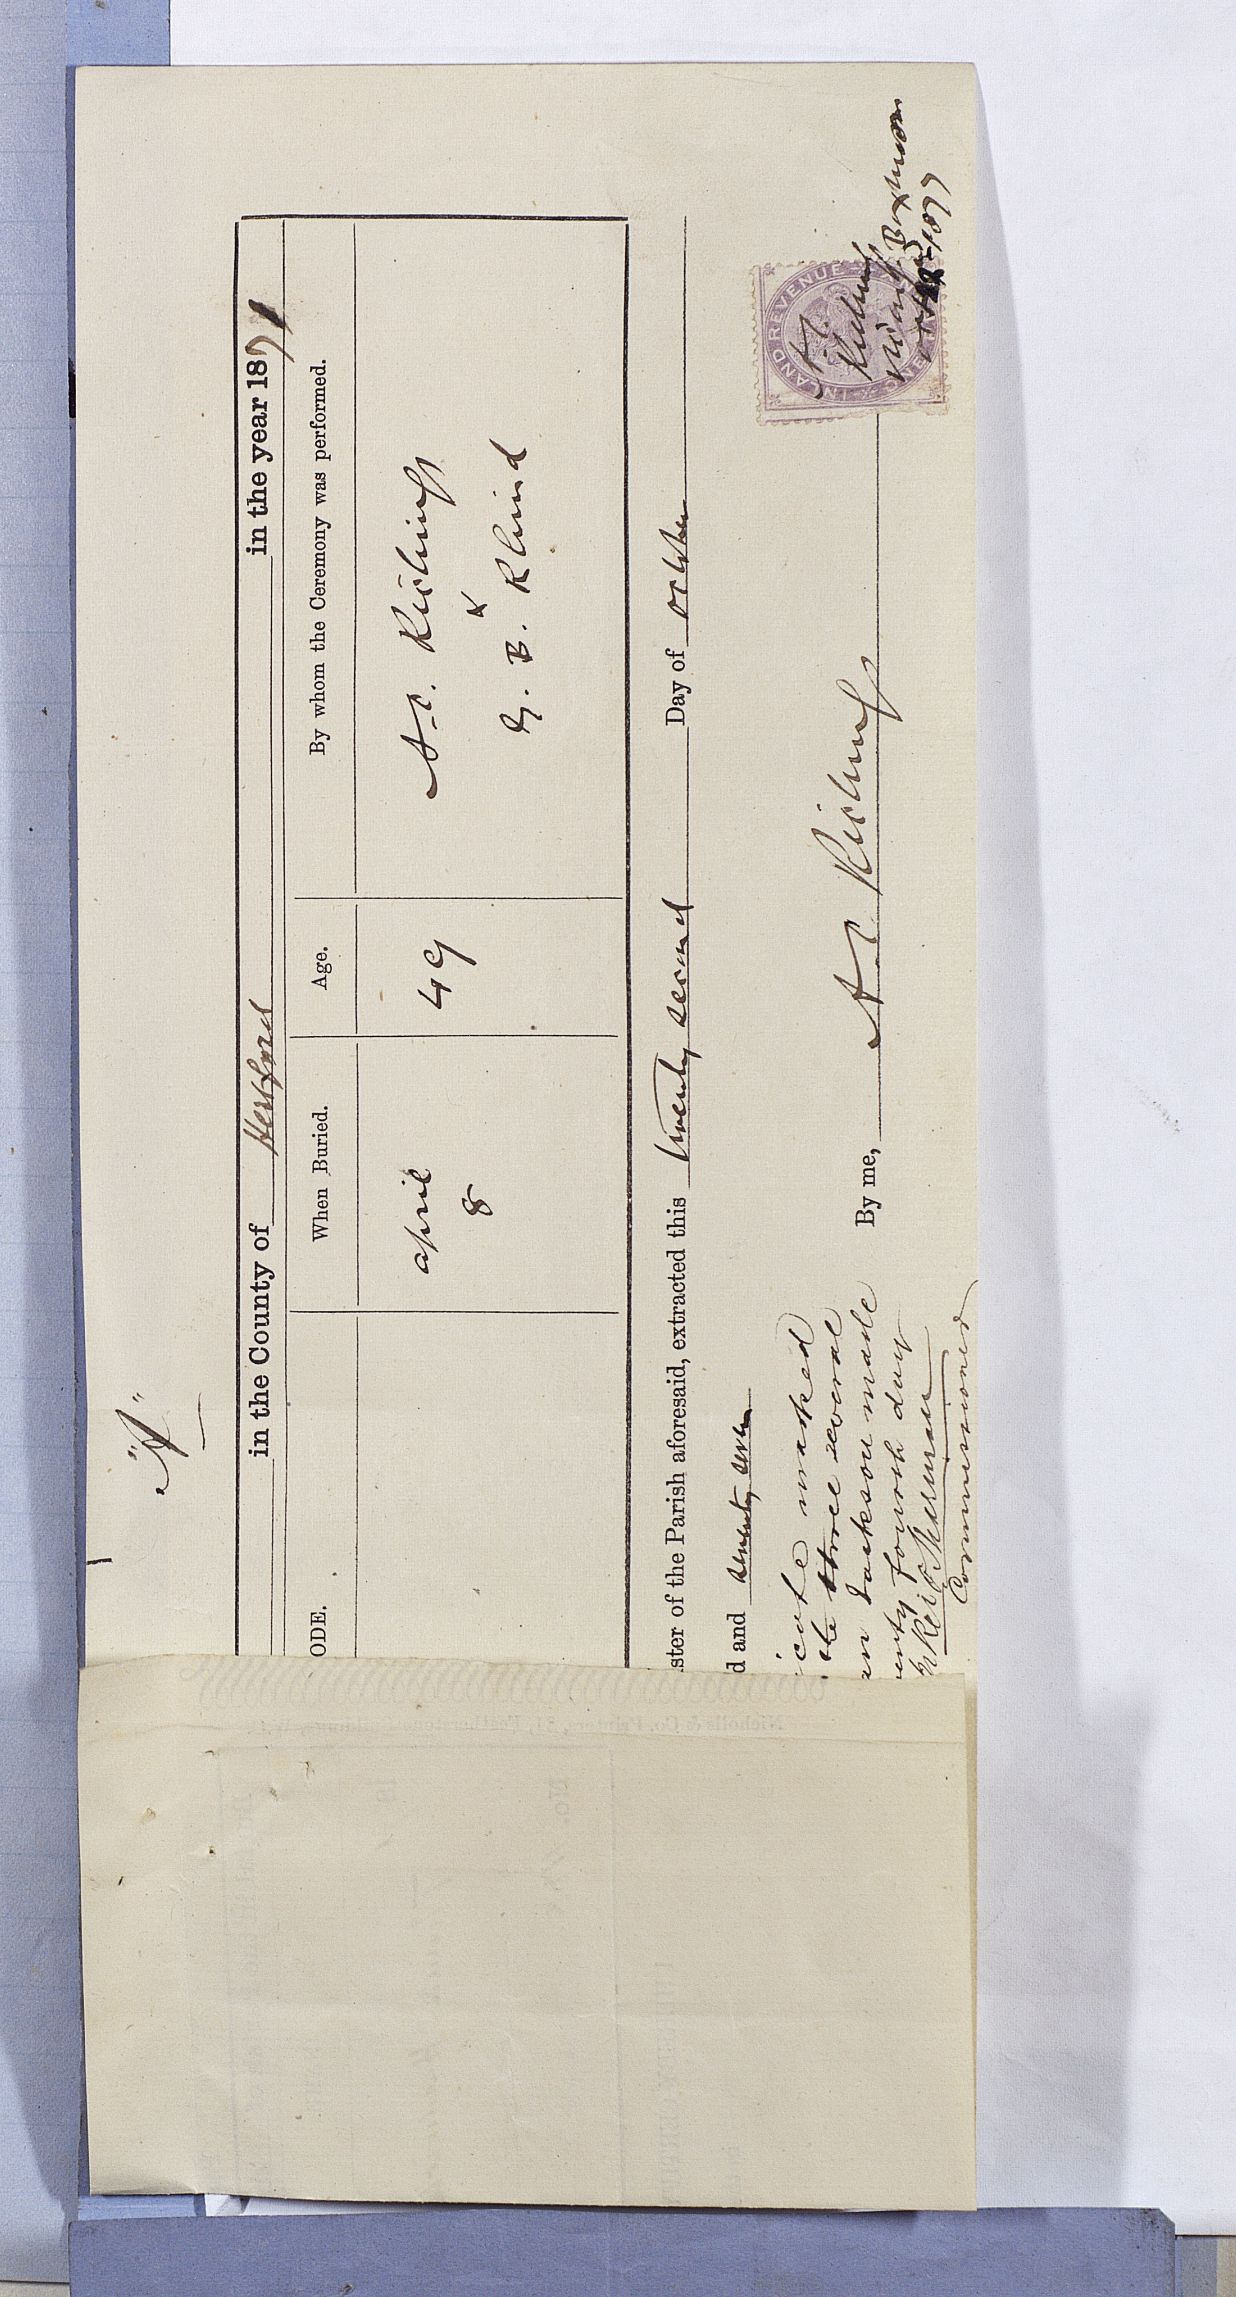 "A"
in the County of Hertford in the year 1871
ODE. When Buried. Age. By whom the Ceremony was performed.
April 49 A. C. Richings
8 &
G. B. Rhind
ster of the Parish aforesaid, extracted this twenty second Day of October
d and seventy seven
By me, A. C. Richings
icate marked
the three several
an Jackson made
enty fourth day
Commissioner
INLAND REVENUE
ONE PENNY
A. C.
Richings
Vicar of Boxmoor
1877
Nicholls & Co. Printers, 51, Featherstone Buildings, W.C.